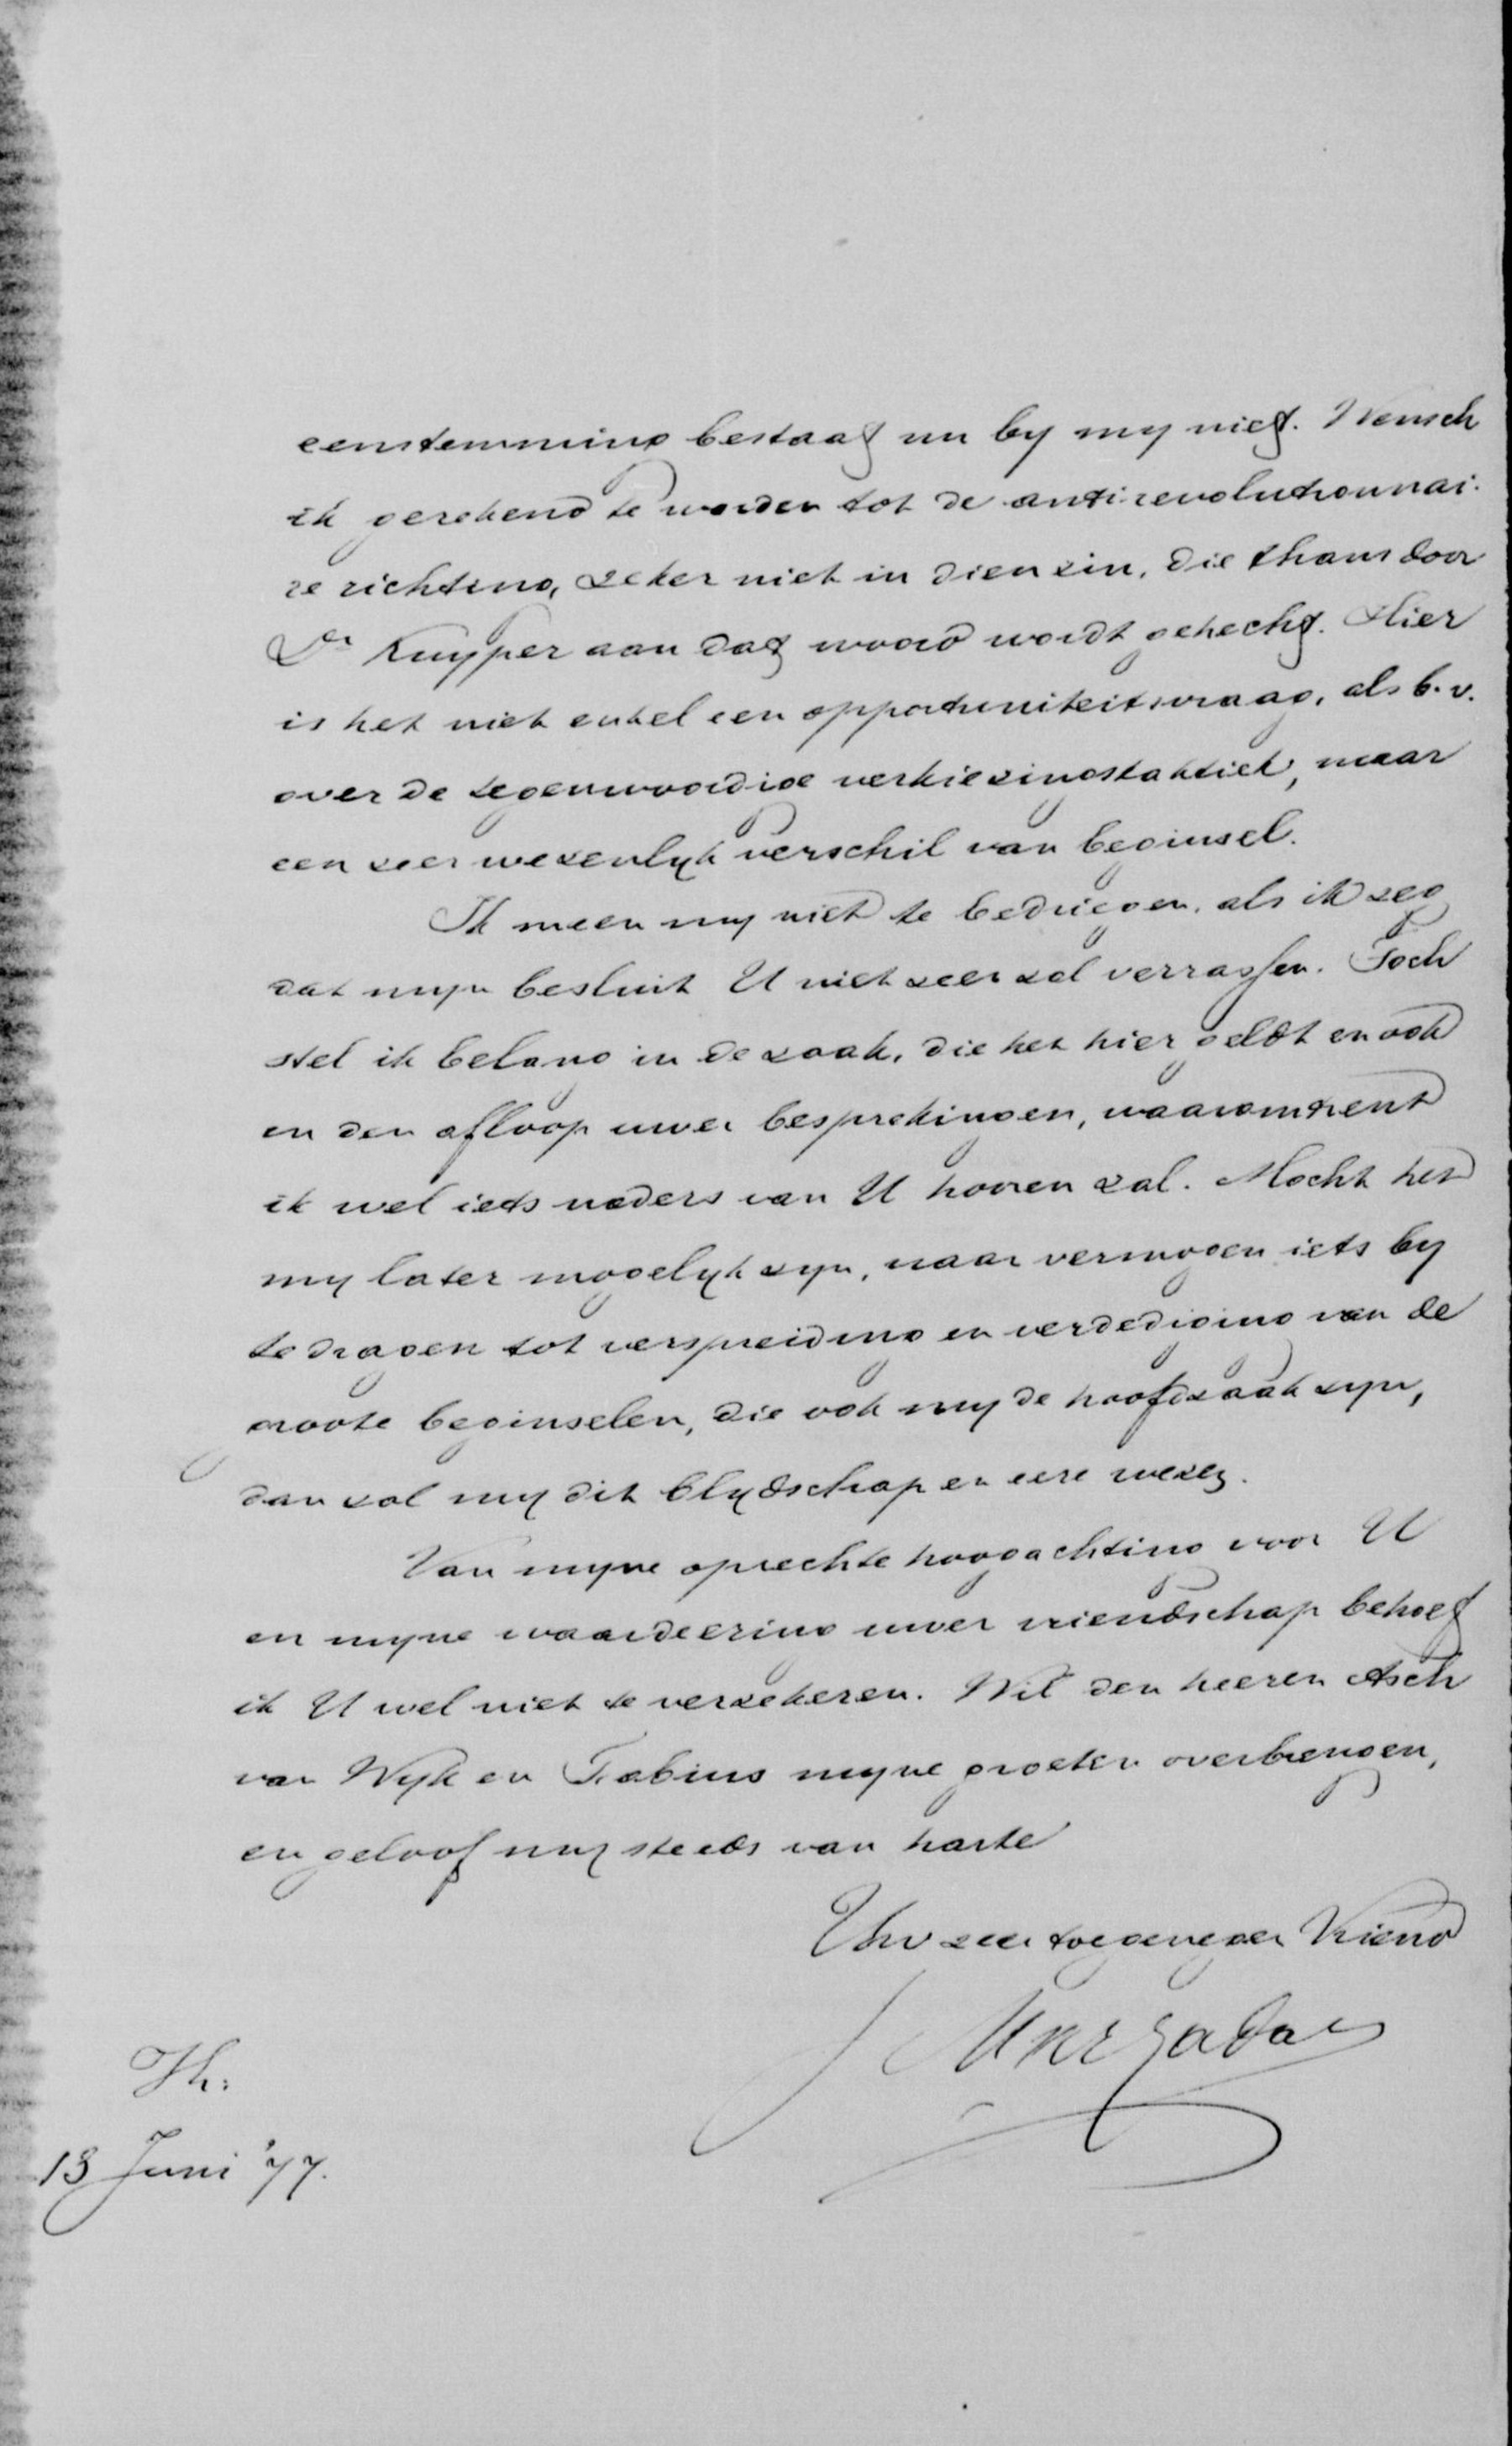 eenstemming bestaat nu by my niet. Wensch
ik gerekend te worden tot de antirevolutionnai-
re richting, zeker niet in dien zin, die thans door
Dr Kuyper aan dat woord wordt gehecht. Hier
is het niet enkel een opportuniteitsvraag, als b.v.
over de tegenwoordige verkiezingstaktiek, maar
een zeer wezenlyk verschil van beginsel.
Ik meen my niet te bedriegen, als ik zeg
dat myn besluit U niet zeer zal verrassen. Toch
stel ik belang in de zaak, die het hier geldt en ook
in den afloop uwer besprekingen, waaromtrent
ik wel iets naders van U hooren zal. Mocht het
my later mogelyk zyn, naar vermogen iets by
te dragen tot verspreiding en verdediging van de
groote beginselen, die ook my de hoofdzaak zyn,
dan zal my dit blydschap en eere wezen.
Van myne oprechte hoogachting voor U
en myne waardeering uwer vriendschap behoef
ik U wel niet te verzekeren. Wil den heeren Asch
van Wyk en Fabius myne groeten overbrengen,
en geloof my steeds van harte
Uw zeer toegenegen Vriend
Th.
13 Juni '77.